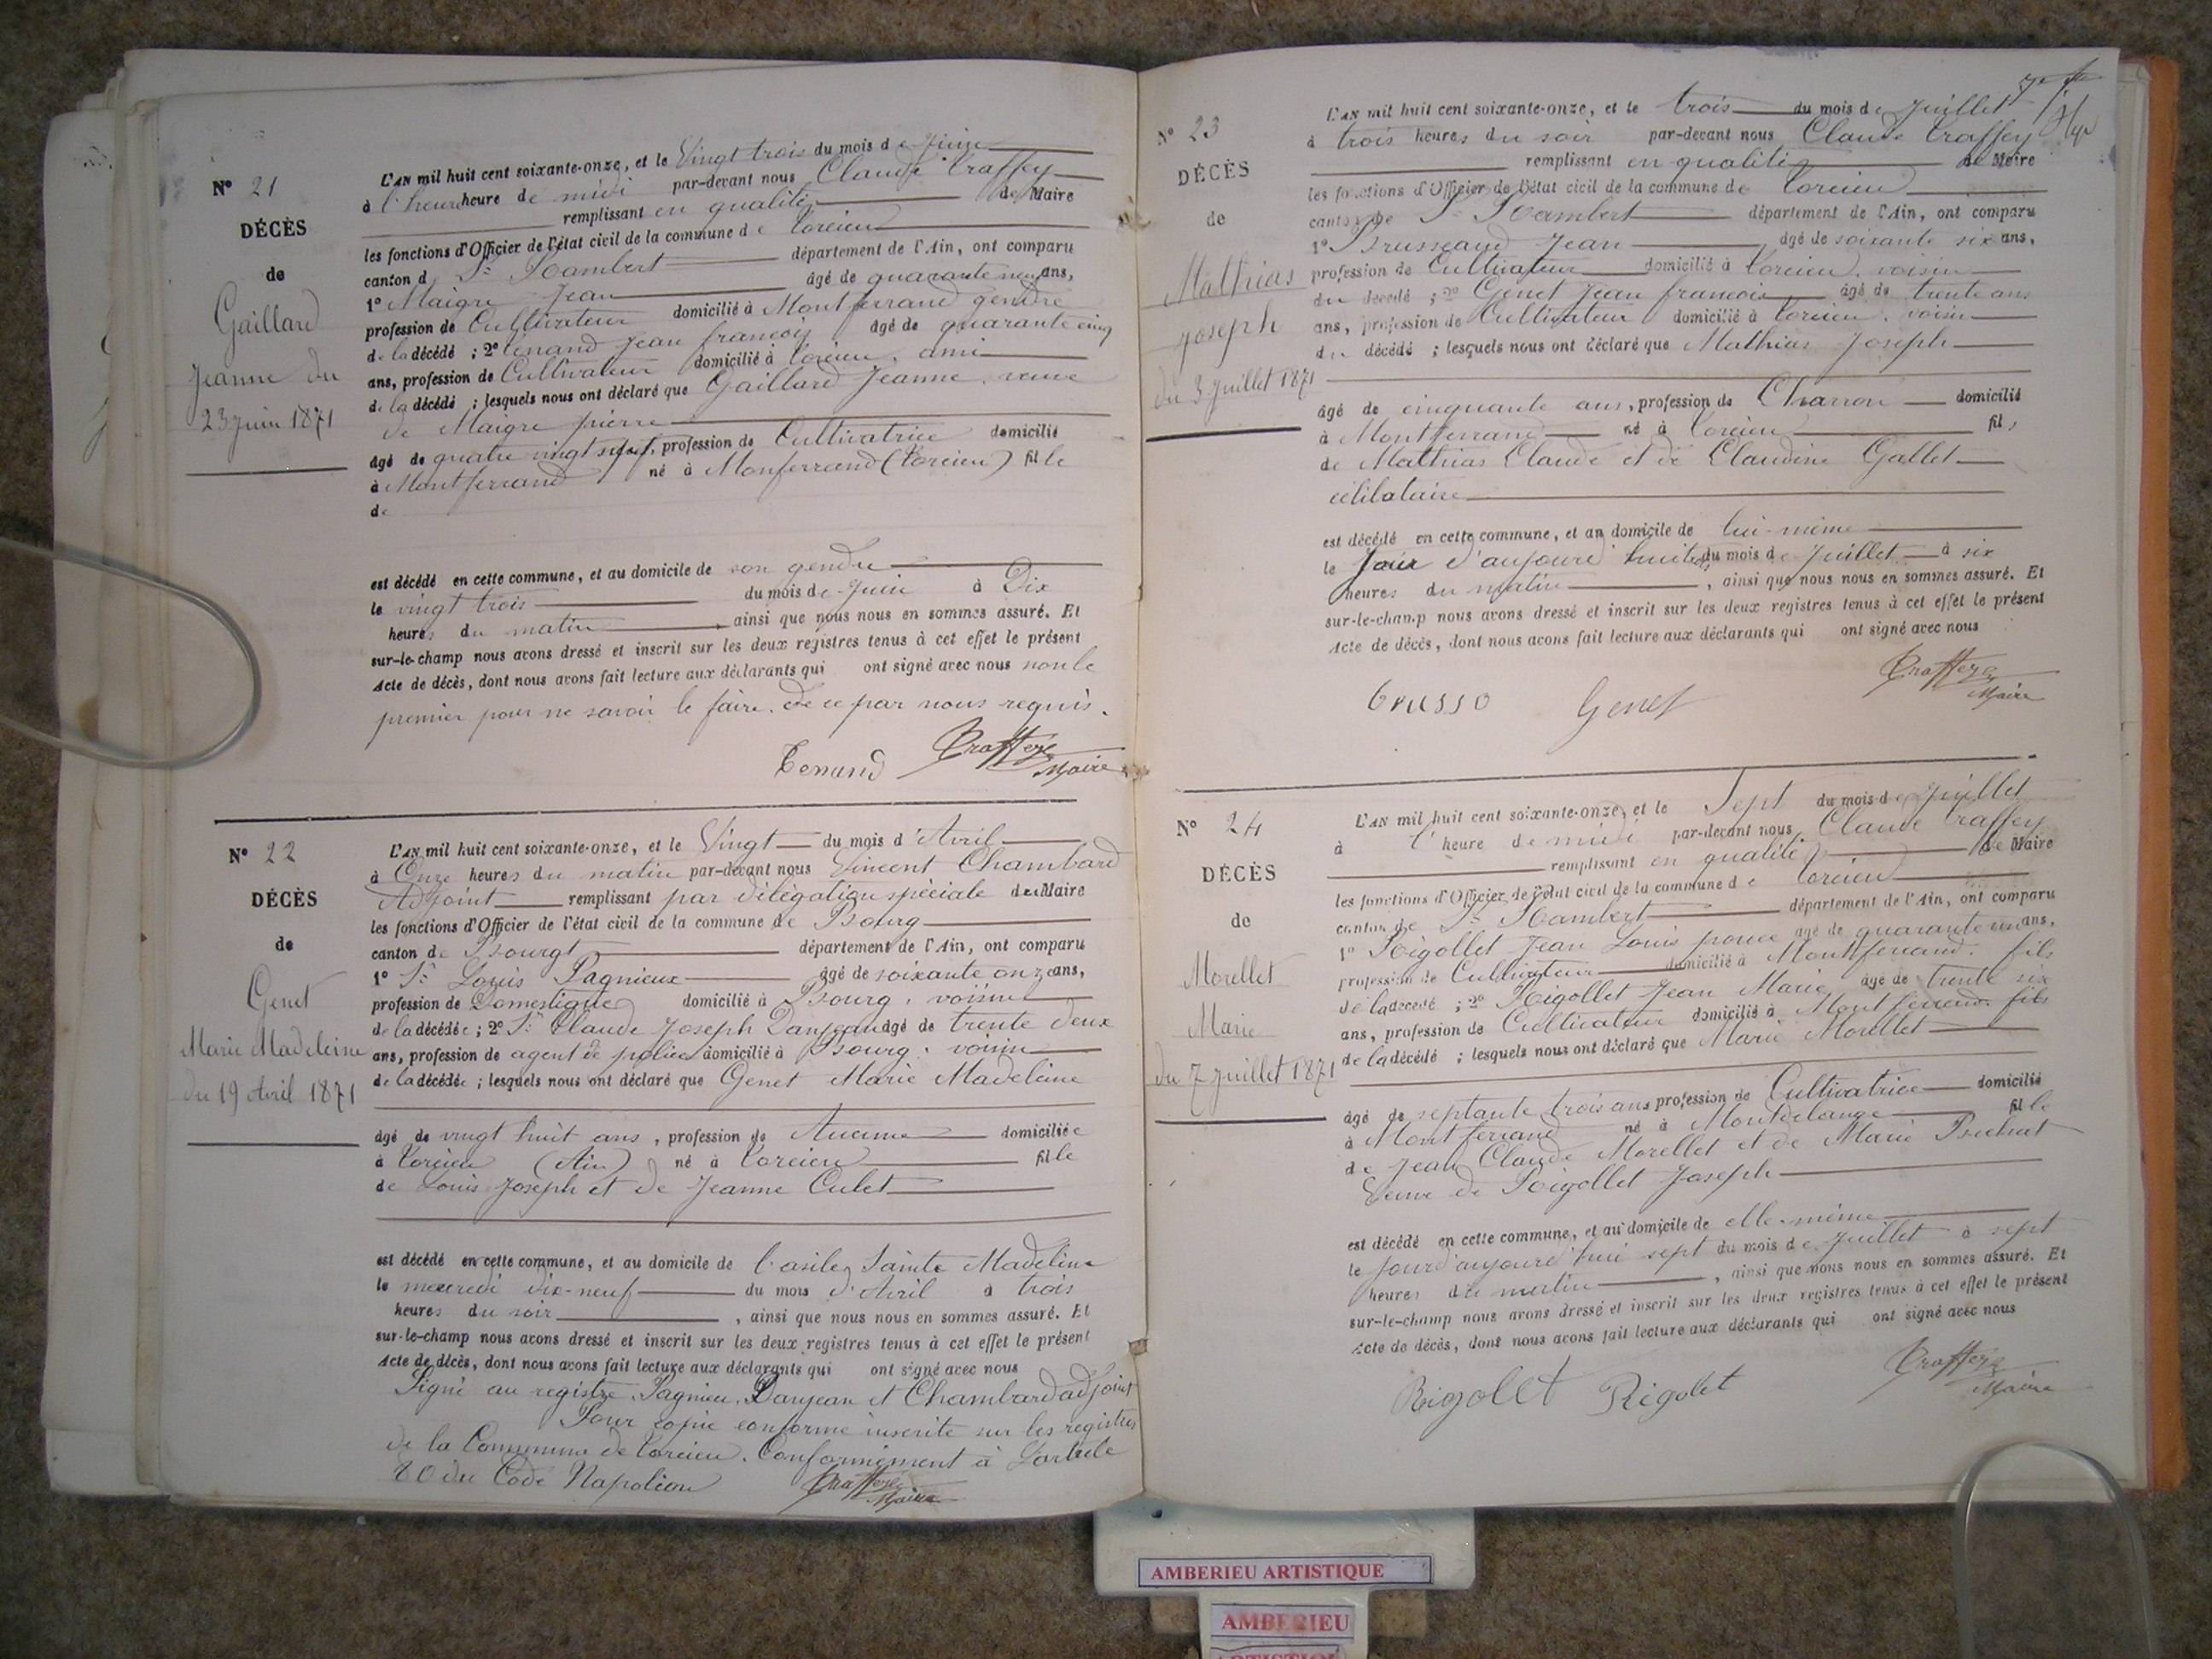 N° 21
DÉCÈS
de
Gaillard
Jeanne du
23 Juin 1871
L'AN mil huit cent soixante-onze, et le Vingt trois du mois de Juin
à l'heure heure de midi par-devant nous Claude Traffey
remplissant en qualité de Maire
les fonctions d'Officier de l'état civil de la commune de Torcieu
canton de St Rambert département de l'Ain, ont comparu
1° Maigre Jean âgé de quarante neuf ans,
profession de Cultivateur domicilié à Montferrand gendre
de la décédé ; 2° Tenand Jean françois âgé de quarante cinq
ans, profession de Cultivateur domicilié à Torcieu, ami
de la décédé ; lesquels nous ont déclaré que Gaillard Jeanne, veuve
de Maigre pierre
âgé de quatre vingt profession de Cultivatrice domicilié
à Montferrand né à Monferrand (Torcieu) fille
de
est décédé en cette commune, et au domicile de son gendre
le vingt trois du mois de Juin à Dix
heures du matin, ainsi que nous nous en sommes assuré. Et
sur-le-champ nous avons dressé et inscrit sur les deux registres tenus à cet effet le présent
Acte de décès, dont nous avons fait lecture aux déclarants qui ont signé avec nous non le
premier pour ne savoir le faire. de ce par nous requis.
Tenand Traffey
Maire
N° 22
DÉCÈS
de
Genet
Marie Madeleine
du 19 Avril 1871
L'AN mil huit cent soixante-onze, et le Vingt du mois d'Avril
à Onze heures du matin par-devant nous Vincent Chambard
Adjoint remplissant par délégation spéciale du Maire
les fonctions d'Officier de l'état civil de la commune de Bourg
canton de Bourgt département de l'Ain, ont comparu
1° Sr Louis Pagnieux âgé de soixante onze ans,
profession de Domestique domicilié à Bourg, voisin
de la décédée ; 2° Sr Claude Joseph Danjean âgé de trente deux
ans, profession de agent de police domicilié à Bourg, voisin
de la décédée ; lesquels nous ont déclaré que Genet Marie Madeleine
âgé de vingt huit ans, profession de Aucune domiciliée
à Torcieu (Ain) né à Torcieu fille
de Louis Joseph et de Jeanne Culet
est décédé en cette commune, et au domicile de l'asile Sainte Madeline
le mercredi dix-neuf du mois d'Avril à trois
heures du soir, ainsi que nous nous en sommes assuré. Et
sur-le-champ nous avons dressé et inscrit sur les deux registres tenus à cet effet le présent
Acte de décès, dont nous avons fait lecture aux déclarants qui ont signé avec nous
Signé au registre, Pagnieu, Danjean et Chambard adjoint
Pour copie conforme inscrite sur les registres
de la Commune de Torcieu. Conformément à L'article
80 du Code Napoléon Traffey
Maire
N° 23
DÉCÈS
de
Mathias
Joseph
du 3 Juillet 1871
L'AN mil huit cent soixante-onze, et le trois du mois de Juillet
à trois heures du soir par-devant nous Claude Traffey
remplissant en qualité de Maire
les fonctions d'Officier de l'état civil de la commune de Torcieu
canton de St Rambert département de l'Ain, ont comparu
1° Jean âgé de soixante six ans,
profession de Cultivateur domicilié à Torcieu, voisin
du décédé ; 2° Genet Jean francois âgé de trente ans
ans, profession de Cultivateur domicilié à Torcieu, voisin
du décédé ; lesquels nous ont déclaré que Mathias Joseph
âgé de cinquante ans, profession de Charron domicilié
à Montferrand né à Torcieu fils
de Mathias Claude et de Claudine Gallet
célibataire
est décédé en cette commune, et au domicile de lui-même
le Jour d'aujourd'hui trois du mois de Juillet à six
heures du matin, ainsi que nous nous en sommes assuré. Et
sur-le-champ nous avons dressé et inscrit sur les deux registres tenus à cet effet le présent
Acte de décès, dont nous avons fait lecture aux déclarants qui ont signé avec nous
Genet Traffey
Maire
N° 24
DÉCÈS
de
Morellet
Marie
du 7 Juillet 1871
L'AN mil huit cent soixante-onze, et le Sept du mois de Juillet
à l'heure de midi par-devant nous Claude Traffey
remplissant en qualité de Maire
les fonctions d'Officier de l'état civil de la commune de Torcieu
canton de St Rambert département de l'Ain, ont comparu
1° Rigollet Jean Louis âgé de quarante un ans,
profession de Cultivateur domicilié à Montferrand. fils
de la décédé ; 2° Rigollet Jean Marie, âgé de trente six
ans, profession de Cultivateur domicilié à Montferrand fils
de la décédé ; lesquels nous ont déclaré que Marie Morellet
âgé de septante trois ans profession de Cultivatrice domicilié
à Montferrand né à fille
de Jean Claude Morellet et de Marie
Veuve de Rigollet Joseph
est décédé en cette commune, et au domicile de elle-même
le Jour d'aujourd'hui sept du mois de Juillet à sept
heures du matin, ainsi que nous nous en sommes assuré. Et
sur-le-champ nous avons dressé et inscrit sur les deux registres tenus à cet effet le présent
Acte de décès, dont nous avons fait lecture aux déclarants qui ont signé avec nous
Rigollet Rigolet Traffey
Maire
AMBERIEU ARTISTIQUE
AMBERIEU
ARTISTIQUE